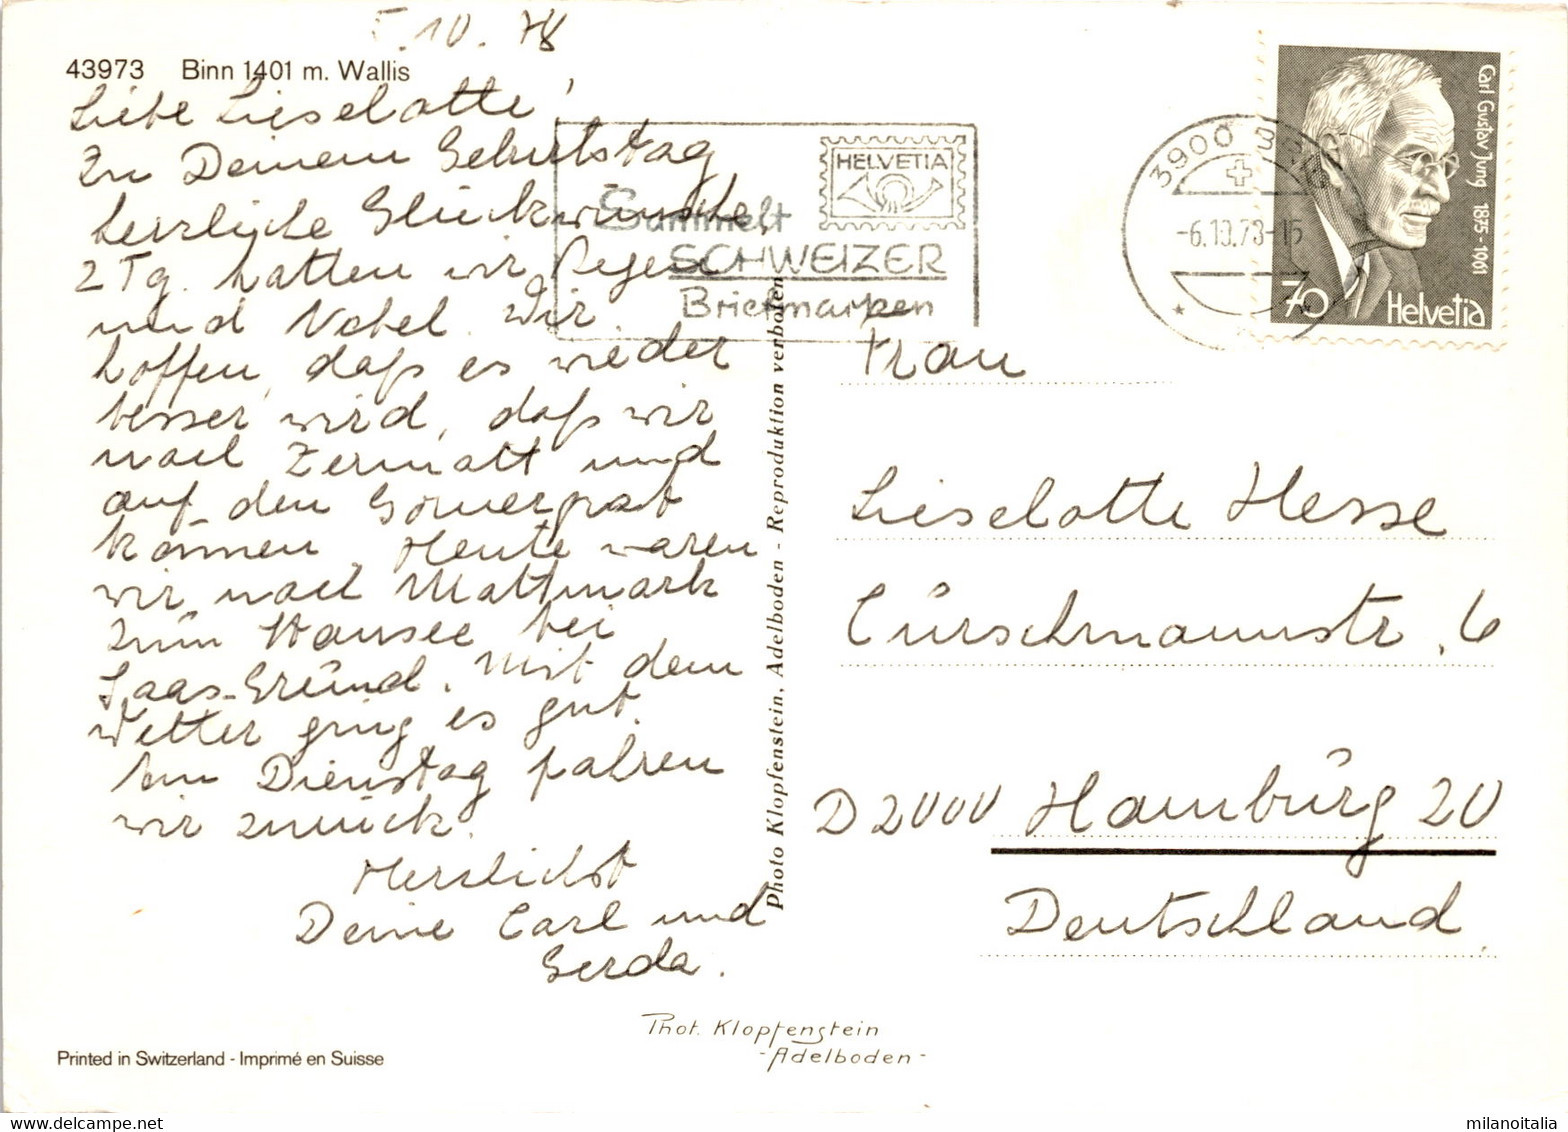 5.10.78
43973 Binn 1401 m. Wallis
Liebe Lieselotte!
Zu Deinem Geburtstag
herzliche Glückwünsche,
2 Tg. hatten wir Regen
und Nebel. Wir
hoffen, daß es wieder
besser wird, daß wir
nach Zermatt und
auf den Gornergrat
können. Heute waren
wir nach Mattmark
zum Stausee bei
Saas-Grund. Mit dem
Wetter ging es gut.
Am Dienstag fahren
wir zurück.
Herzlichst
Deine Carl und
Gerda.
Printed in Switzerland - Imprimé en Suisse
Photo Klopfenstein, Adelboden - Reproduktion verboten
Phot. Klopfenstein
-Adelboden-
HELVETIA
Sammelt
SCHWEIZER
Briefmarken
3900 BRIG
-6.10.78-15
Carl Gustav Jung 1875-1961
70 Helvetia
Frau
Lieselotte Hesse
Cürschmannstr. 6
D 2000 Hamburg 20
Deutschland
milanoitalia